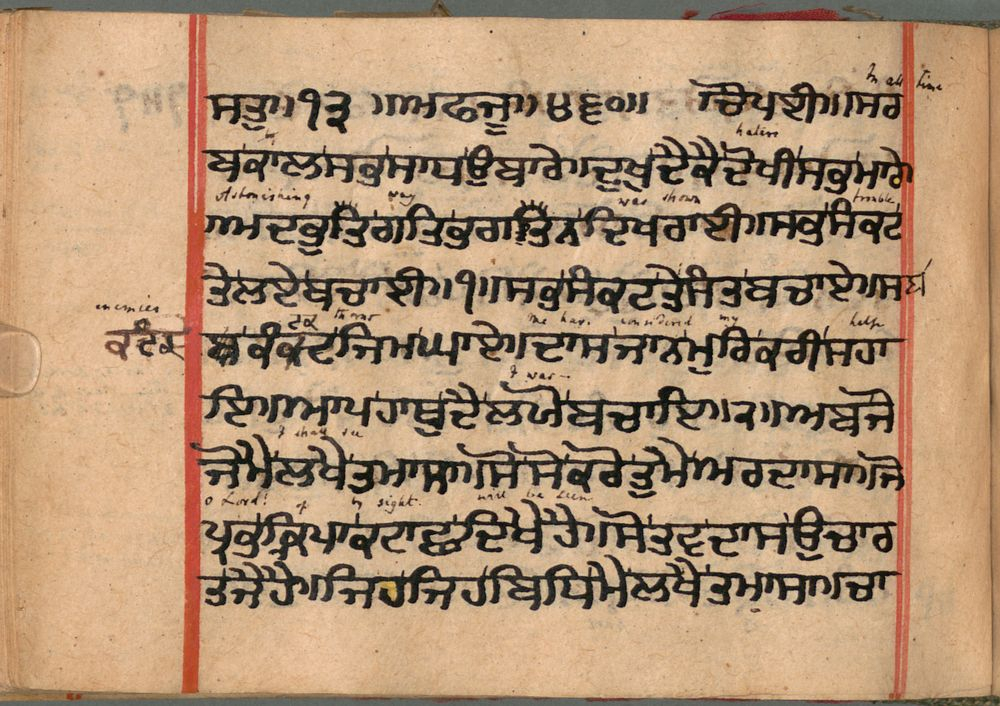 In all time
ਸਤੁ॥੧੩॥ਅਫਜੂ॥੪੬੦॥ ਚੌਪਈ॥ਸਰ
haters
ਬਕਾਲਸਭੁਸਾਧਉਬਾਰੇ॥ਦੁਖੁਦੈਕੈਦੋਖੀਸਭੁਮਾਰੇ
Astonishing way was shown trouble
॥ਅਦਭੁਤਿਗਤਿਭਗਤਿਨਦਿਖਰਾਈ॥ਸਭੁਸੰਕਟ
ਤੇਲਏਬਚਾਈ॥੧॥ਸਭੁਸੰਕਟਤੇਸੰਤਬਚਾਏ॥ਸਭ
enemies thorns me has considered my help
ਕੰਟਕ ਕੰਕਟਜਿਮਘਾਏ॥ਦਾਸਜਾਨਮੁਰਿਕਰੀਸਹਾ
I was
ਇ॥ਆਪਹਾਥੁਦੈਲਯੋਬਚਾਇ॥੨॥ਅਬਜੋ
I shall see
ਜੋਮੈਲਖੈਤੁਮਾਸਾ॥ਸੋਸੋਕਰੋਤੁਮੈਅਰਦਾਸਾ॥ਜੋ
O Lord! of by sight. will be seen
ਪ੍ਰਭੁਕ੍ਰਿਪਾਕਟਾਛਦਿਖੈਹੈ॥ਸੋਤਵਦਾਸਉਚਾਰ
ਤਜੈਹੈ॥ਜਿਹਜਿਹਬਿਧਿਮੈਲਖੈਤੁਮਾਸਾ॥ਚਾ